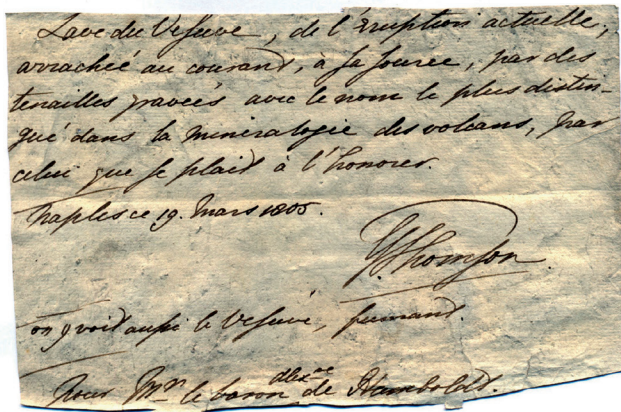 Lave du Vesuve, de l'éruption actuelle,
arrachéé au courand, à sa source, par des
tenailles gravéés avec le nom le plus distin-
gué dans la minéralogie des volcans, par
celui que se plaid à l'honorer.
Naples ce 19. Mars 1805.
GThomson.
on y void aussi le Vesuvé, fumand.
Pour Mr. le baron Alexre de Humboldt.